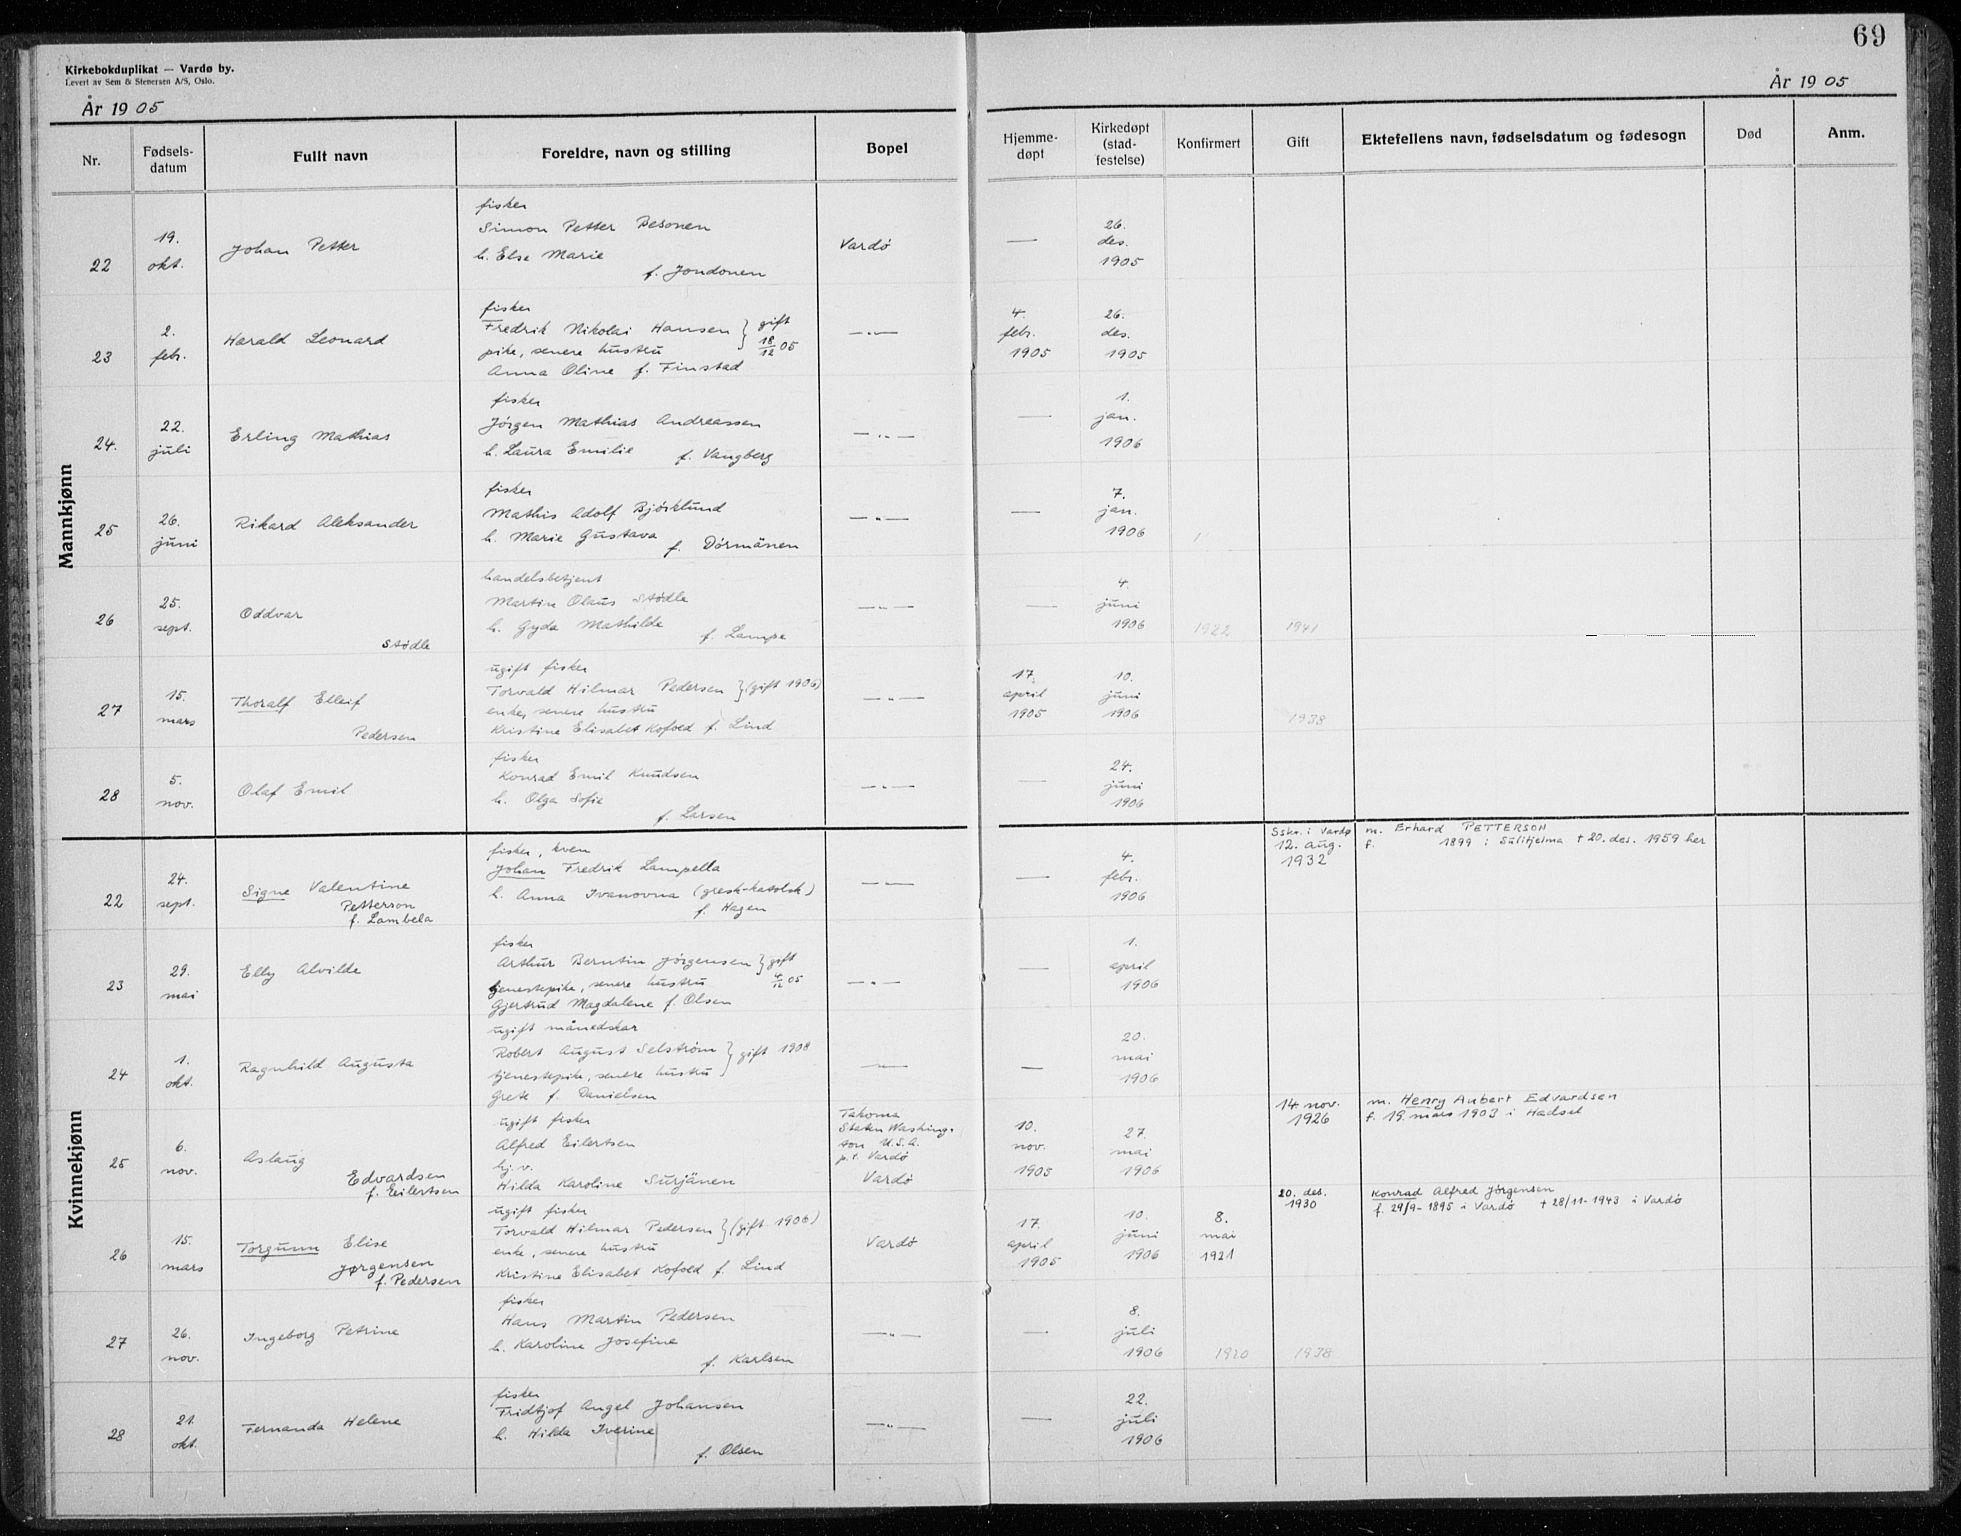 69
Kirkebokduplikat — Vardø by.
Levert av Sem & Stenersen A/S, Oslo.
År 1905
År 1905
Nr.
Fødsels-
datum
Fullt navn
Foreldre, navn og stilling
Bopel
Hjemme-
døpt
Kirkedøpt
(stad-
festelse)
Konfirmert
Gift
Ektefellens navn, fødselsdatum og fødesogn
Død
Anm.
Mannkjønn
22
19.
okt.
Johan Petter
fisker
Simon Petter Besonen
h. Else Marie
f. Jondonen
Vardø
—
26.
des.
1905
23
2.
feb.
Harald Leonard
fisker
Fredrik Nikolai Hansen } gift
pike, senere hustru 18/12 05
Anna Oline f. Finstad
— " —
4.
feb.
1905
26.
des.
1905
24.
22.
juli
Erling Mathias
fisker
Jörgen Mathias Andreassen
h. Laura Emilie f. Vangberg
— " —
—
1.
jan.
1906
25
26.
juni
Rikard Aleksander
fisker
Mathis Adolf Björklund
h. Marie Gustava
f. Dörmänen
— " —
—
7.
jan.
1906
26
25.
sept.
Oddvar
Stødle
handelsbetjent
Martin Olaus Stødle
h. Gyda Mathilde
f. Lampe
— " —
—
4.
juni
1906
1922
1941
27
15.
mars
Thoralf Elleif
Pedersen
ugift fisker
Torvald Hilmar Pedersen } (gift 1906)
enke, senere hustru
Kristine Elisabet Kofoed f. Lind
— " —
17.
april
1905
10.
juni
1906
1938
28
5.
nov.
Olaf Emil
fisker
Konrad Emil Knudsen
h. Olga Sofie
f. Larsen
— " —
—
24.
juni
1906
Kvinnekjønn
22
24.
sept.
Signe Valentine
Petterson
f. Lambela
fisker, kven
Johan Fredrik Lampella
h. Anna Ivanovna (gresk-katolsk)
f. Hagen
— " —
—
4.
feb.
1906
Sskr. i Vardø
12. aug.
1932
m. Erhard PETTERSON
f. 1899 i Sulitjelma + 20. des. 1959 her
23
29.
mai
Elly Alvilde
fisker
Arthur Berntin Jørgensen } gift
tjenestepike, senere hustru 4/12 05
Gjertrud Magdalene f. Olsen
— " —
—
1.
april
1906
24
1.
okt.
Ragnhild Augusta
ugift månedskar
Robert August Selström } gift 1908
tjenestepike, senere hustru
Grete f. Danielsen
— " —
—
20.
mai
1906
25
6.
nov.
Aslaug
Edvardsen
f. Eilertsen
ugift fisker
Alfred Eilertsen
hj. v.
Hilda Karoline Surjänen
Takoma
Staten Washing-
ton U.S.A.
p.t. Vardø
Vardø
10.
nov.
1905
27.
mai
1906
14 nov.
1926
m. Henry Aubert Edvardsen
f. 19. mars 1903 i Hadsel
26
15.
mars
Torgunn Elise
Jørgensen
f. Pedersen
ugift fisker
Torvald Hilmar Pedersen } (gift 1906)
enke, senere hustru
Kristine Elisabet Kofoed f. Lind
Vardø
17.
april
1905
10.
juni
1906
8.
mai
1921
20. des.
1930
Konrad Alfred Jørgensen
f. 29/9-1895 i Vardø + 28/11-1943 i Vardø
27
26.
nov.
Ingeborg Petrine
fisker
Hans Martin Pedersen
h. Karoline Josefine
f. Karlsen
— " —
—
8.
juli
1906
1920
1938
28
21.
okt.
Fernanda Helene
fisker
Fridtjof Angel Johansen
h. Hilda Iverine
f. Olsen
— " —
—
22.
juli
1906